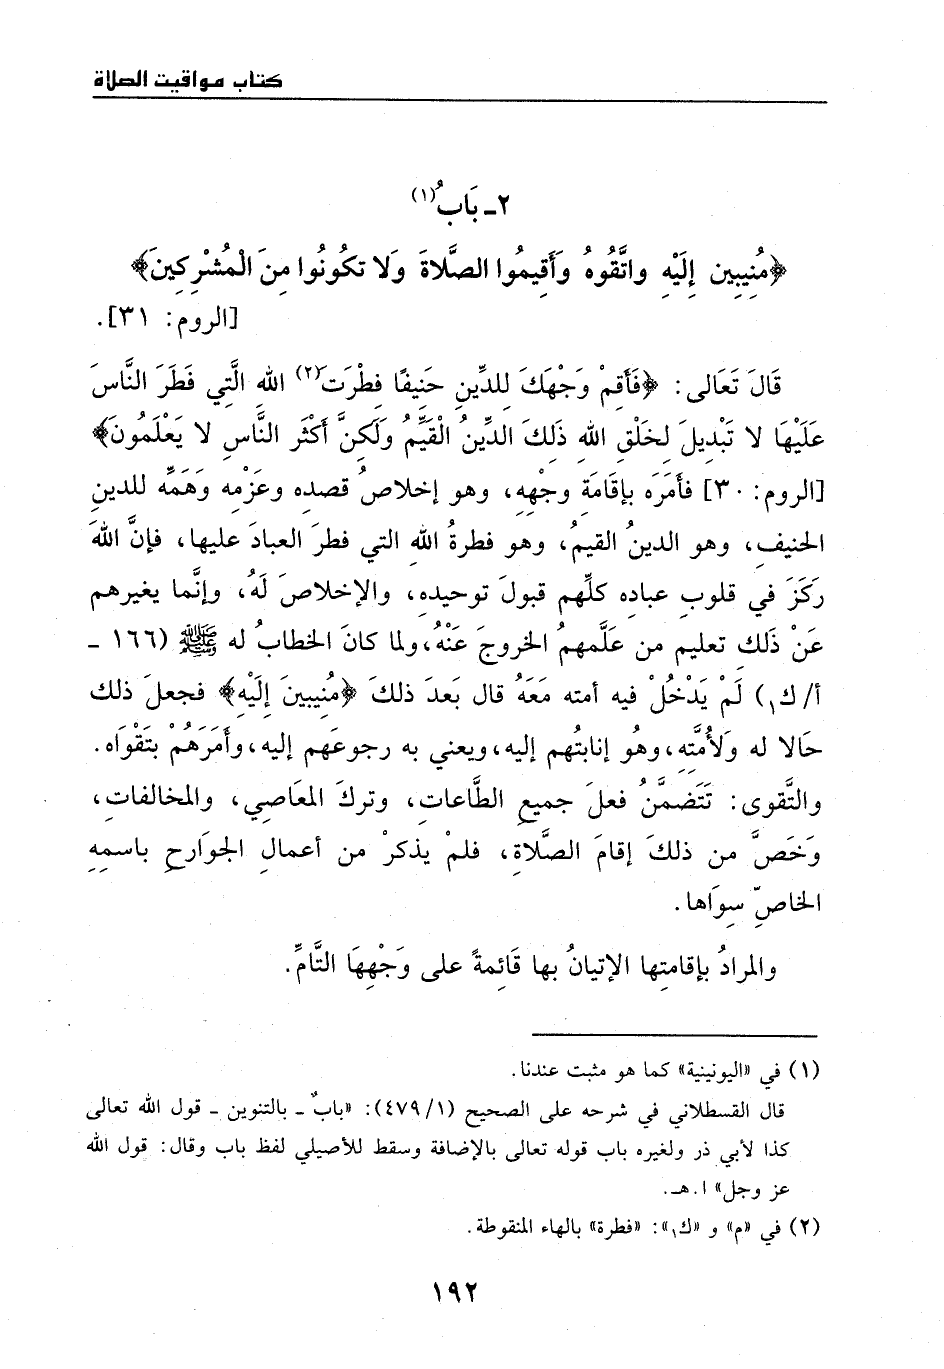 كتاب مواقيت الصلاة
٢ـ بَابُ(١)
﴿مُنِيبِين إِلَيْهِ واتَّقُوهُ وَأَقِيمُوا الصَّلَاةَ وَلَا تكُونُوا مِنَ الْمُشْرِكِينَ﴾
[الروم: ٣١].
قَالَ تَعَالى: ﴿فَأَقِمْ وَجْهَكَ لِلدِّينِ حَنِيفًا فِطْرَت(٢) اللهِ الَّتِي فَطَرَ النَّاسَ
عَلَيْهَا لا تَبْدِيلَ لِخَلْقِ اللهِ ذَلِكَ الدِّينُ الْقَيِّمُ وَلَكِنَّ أَكْثَر النَّاسِ لا يَعْلَمُونَ﴾
[الروم: ٣٠] فأَمَرَه بإِقَامَةِ وجهِهِ، وهو إخلاصُ قصدِه وعزْمِه وَهَمِّه للدينِ
الحنيفِ، وهو الدينُ القيمُ، وهو فطرةُ اللهِ التي فطرَ العبادَ عليها، فإنَّ اللهَ
رَكَزَ في قلوبِ عبادِه كلِّهم قبولَ توحيدِه، والإخلاصَ لَهُ، وإنَّما يغيرهم
عَنْ ذَلك تعليم من عَلَّمهمُ الخروجَ عَنْهُ، ولما كانَ الخطابُ له ﷺ (١٦٦ ـ
أ/ ك١) لَمْ يَدْخُلْ فيه أمته مَعَهُ قال بَعدَ ذلكَ ﴿مُنِيبِينَ إِلَيْهِ﴾ فجعلَ ذلك
حَالا له ولأُمَّتِه، وهُو إنابتُهم إليه، ويعني به رجوعَهم إليه، وأَمَرَهُمْ بتَقْوَاه.
والتَّقوى: تَتَضمَّنُ فعلَ جميعِ الطَّاعاتِ، وتركَ المعَاصِي، والمخالفاتِ،
وَخَصَّ من ذلكَ إقامَ الصَّلاةِ، فلمْ يذكرْ من أعمالِ الجوَارحِ باسمِهِ
الخاصِّ سِوَاها.
والمرادُ بإقامتِها الإتيانُ بها قَائِمةً على وَجْهِهَا التَّامِّ.
(١) في «اليونينية» كما هو مثبت عندنا.
قال القسطلاني في شرحه على الصحيح (١/ ٤٧٩): «بابٌ ـ بالتنوين ـ قول الله تعالى
كذا لأبي ذر ولغيره باب قوله تعالى بالإضافة وسقط للأصيلي لفظ باب وقال: قول الله
عز وجل» ا.هـ.
(٢) في «م» و «ك١»: «فطرة» بالهاء المنقوطة.
١٩٢